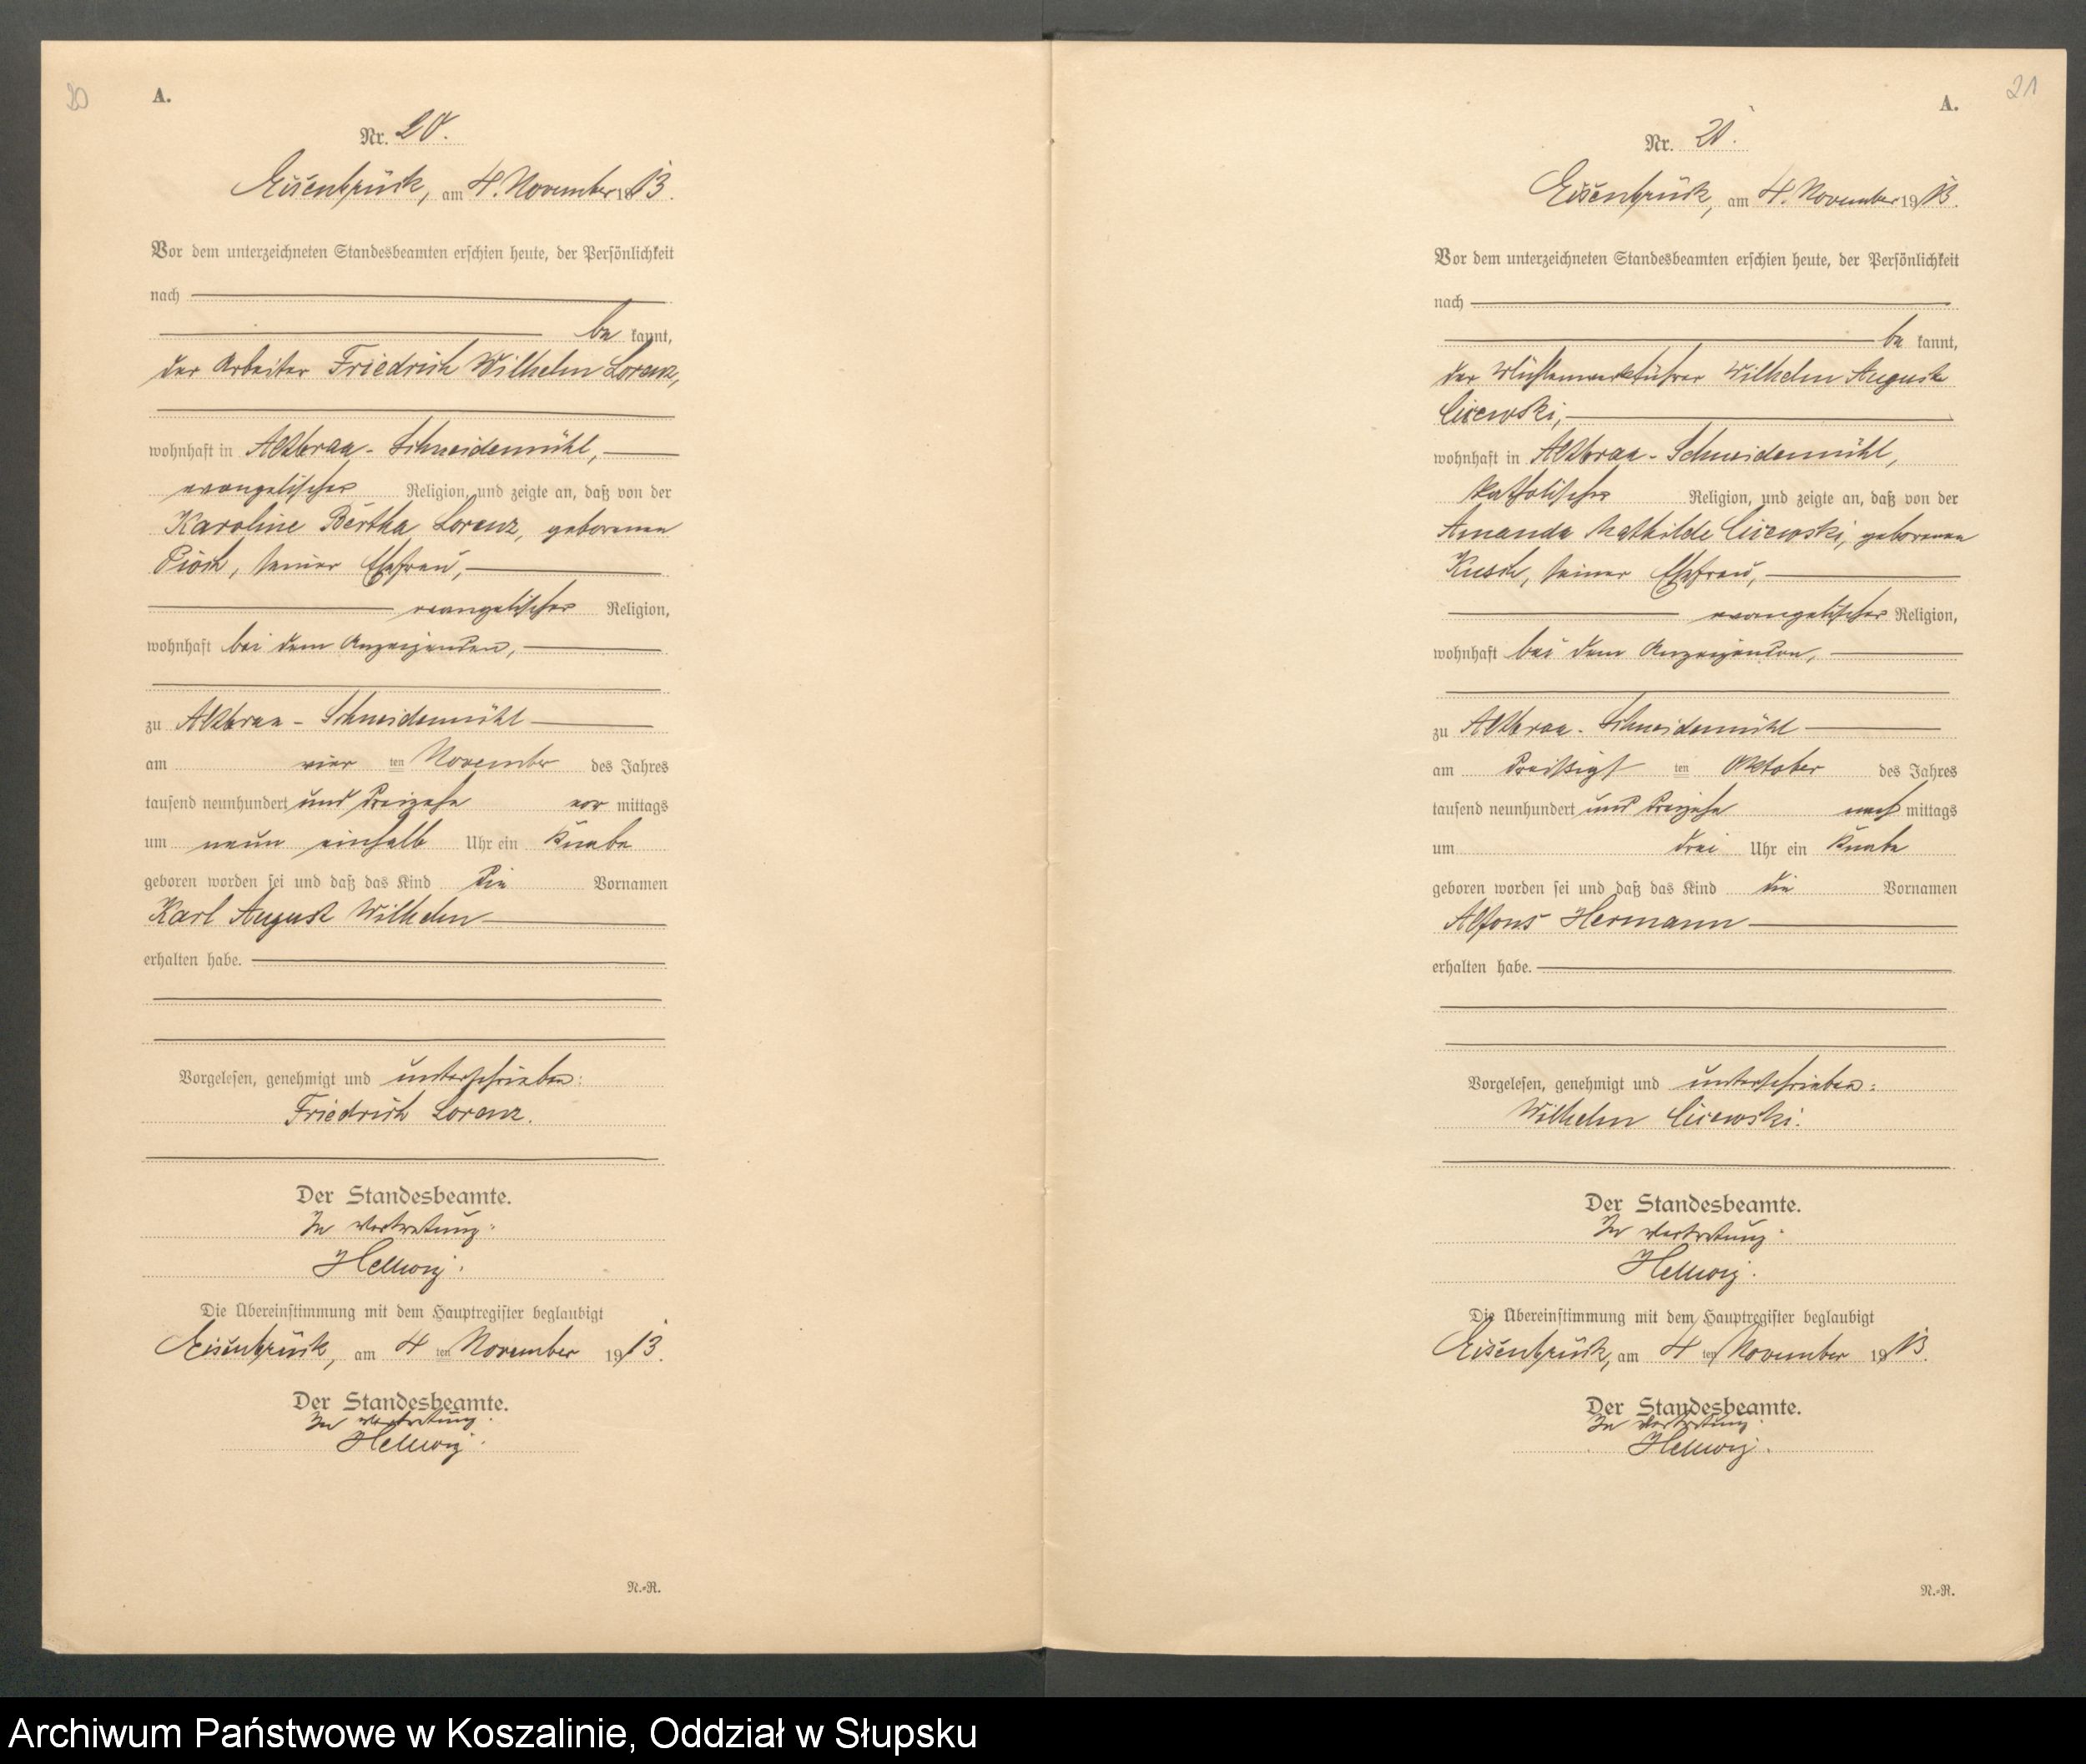 20
A.
Nr. 20.
Eisenbrück, am 4. November 1913.
Vor dem unterzeichneten Standesbeamten erschien heute, der Persönlichkeit
nach
be kannt,
der Arbeiter Friedrich Wilhelm Lorenz,
wohnhaft in Altbraa-Schneidemühl,
evangelischer Religion, und zeigte an, daß von der
Karoline Bertha Lorenz, geborenen
Piosch, seiner Ehefrau,
evangelischer Religion,
wohnhaft bei dem Anzeigenden,
zu Altbraa-Schneidemühl
am vier ten November des Jahres
tausend neunhundert und dreizehn vor mittags
um neun einhalb Uhr ein Knabe
geboren worden sei und daß das Kind die Vornamen
Karl August Wilhelm
erhalten habe.
Vorgelesen, genehmigt und unterschrieben:
Friedrich Lorenz.
Der Standesbeamte.
In Vertretung:
Hellwig.
Die Übereinstimmung mit dem Hauptregister beglaubigt
Eisenbrück, am 4 ten November 1913.
Der Standesbeamte.
In Vertretung.
Hellwig.
N.-R.
21
A.
Nr. 21.
Eisenbrück, am 4. November 1913.
Vor dem unterzeichneten Standesbeamten erschien heute, der Persönlichkeit
nach
be kannt,
der Wilhelm August
Cisewski,
wohnhaft in Altbraa-Schneidemühl,
katholischer Religion, und zeigte an, daß von der
Amanda Mathilde Cisewski, geborenen
Kusch, seiner Ehefrau,
evangelischer Religion,
wohnhaft bei dem Anzeigenden,
zu Altbraa-Schneidemühl
am dreißigst ten Oktober des Jahres
tausend neunhundert und dreizehn nach mittags
um drei Uhr ein Knabe
geboren worden sei und daß das Kind die Vornamen
Alfons Hermann
erhalten habe.
Vorgelesen, genehmigt und unterschrieben:
Wilhelm Cisewski.
Der Standesbeamte.
In Vertretung.
Hellwig.
Die Übereinstimmung mit dem Hauptregister beglaubigt
Eisenbrück, am 4 ten November 1913.
Der Standesbeamte.
In Vertretung.
Hellwig.
N.-R.
Archiwum Państwowe w Koszalinie, Oddział w Słupsku